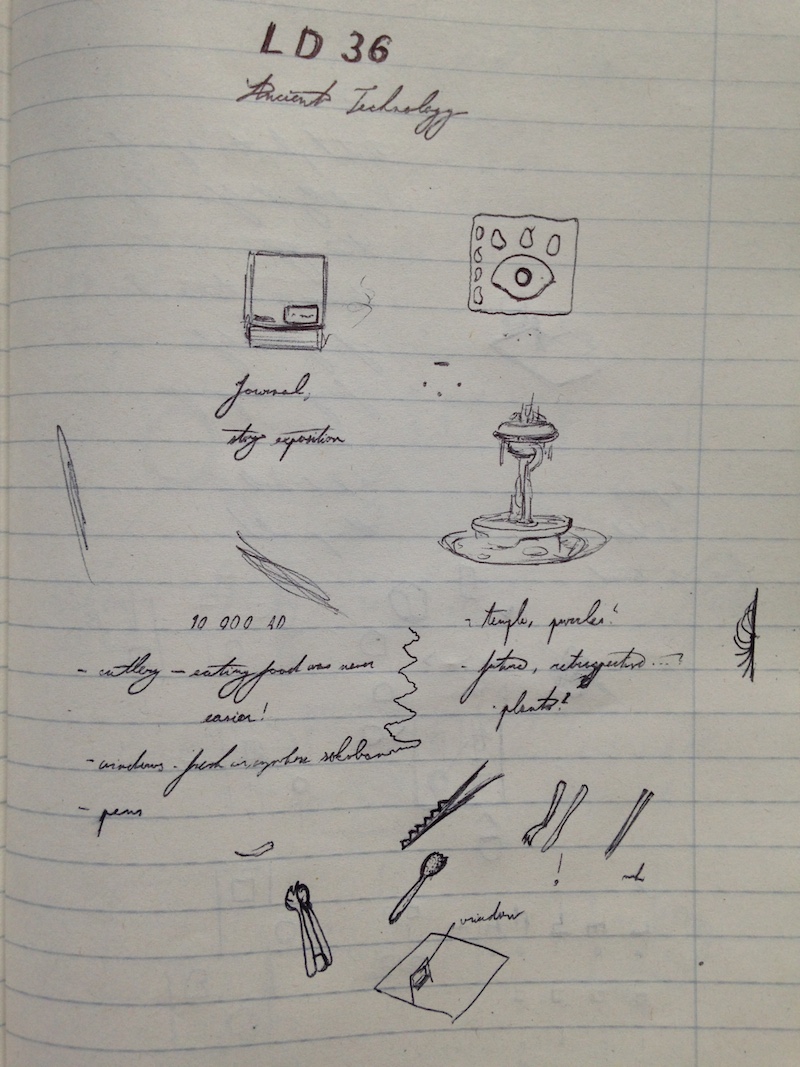 LD 36
Ancient Technology
Journal,
story exposition
10 000 AD
- cutlery — eating food was never
easier!
- windows - fresh air anywhere sokoban
- pens
- temple, puzzles!
- future, retrospective...?
- plants?
!
meh
window